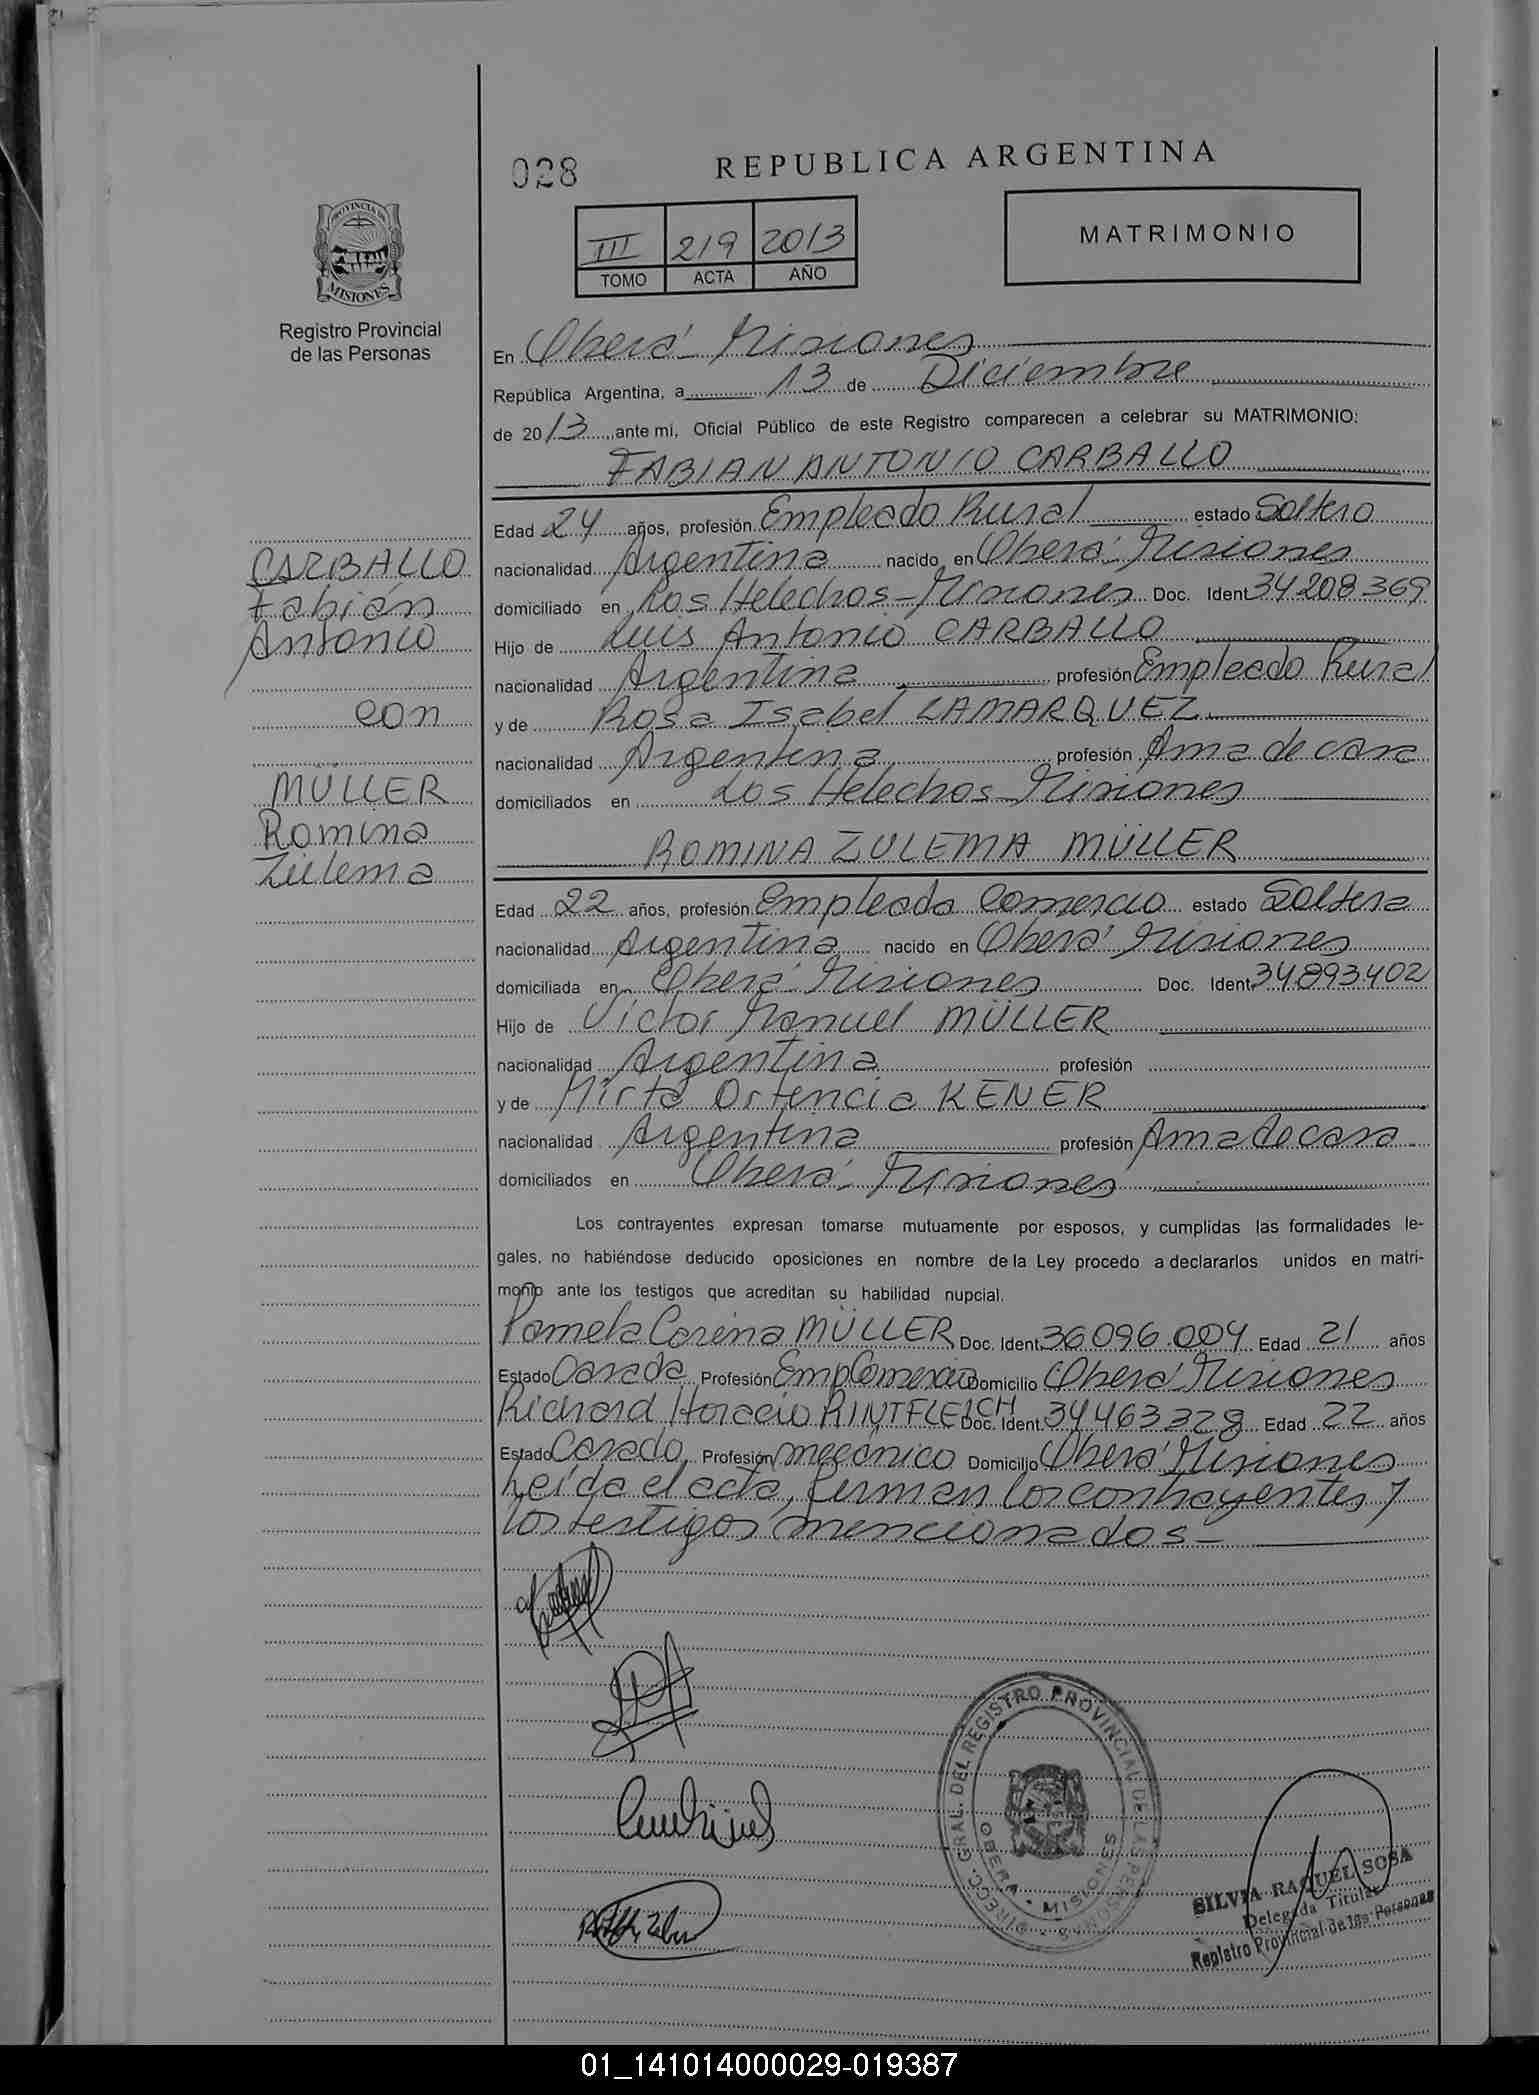 028
REPUBLICA ARGENTINA
III 219 2013
TOMO ACTA AÑO
MATRIMONIO
PROVINCIA DE
MISIONES
Registro Provincial
de las Personas
En Oberá - Misiones
República Argentina, a 13 de Diciembre
de 2013, ante mi, Oficial Público de este Registro comparecen a celebrar su MATRIMONIO:
FABIAN ANTONIO CARBALLO
Edad 24 años, profesión Empleado Rural estado Soltero
nacionalidad Argentina nacido en Oberá Misiones
domiciliado en Los Helechos - Misiones Doc. Ident 34208369
Hijo de Luis Antonio CARBALLO
nacionalidad Argentina profesión Empleado Rural
y de Rosa Isabel LAMARQUEZ
nacionalidad Argentina profesión Ama de casa
domiciliados en Los Helechos Misiones
CARBALLO
Fabián
Antonio
con
MÜLLER
Romina
Zulema
ROMINA ZULEMA MÜLLER
Edad 22 años, profesión Empleada Comercio estado Soltera
nacionalidad Argentina nacido en Oberá Misiones
domiciliada en Oberá - Misiones Doc. Ident 34893402
Hijo de Víctor Manuel MÜLLER
nacionalidad Argentina profesión
y de Mirta Ortencia KENER
nacionalidad Argentina profesión Ama de casa
domiciliados en Oberá - Misiones
Los contrayentes expresan tomarse mutuamente por esposos, y cumplidas las formalidades le-
gales, no habiéndose deducido oposiciones en nombre de la Ley procedo a declararlos unidos en matri-
monio ante los testigos que acreditan su habilidad nupcial.
Pamela Carina MÜLLER Doc. Ident. 36096.004 Edad 21 años
Estado Casada Profesión Emp Comercio Domicilio Oberá Misiones
Richard Horacio RINTFLEICH Doc. Ident. 34463328 Edad 22 años
Estado Casado Profesión mecánico Domicilio Oberá Misiones
Leída el acta, firman los contrayentes y
los testigos mencionados -
DIRECC. GRAL. DEL REGISTRO PROVINCIAL DE LAS PERSONAS
OBERA - MISIONES
SILVIA RAQUEL SOSA
Delegada Titular
Registro Provincial de las Personas
01_141014000029-019387